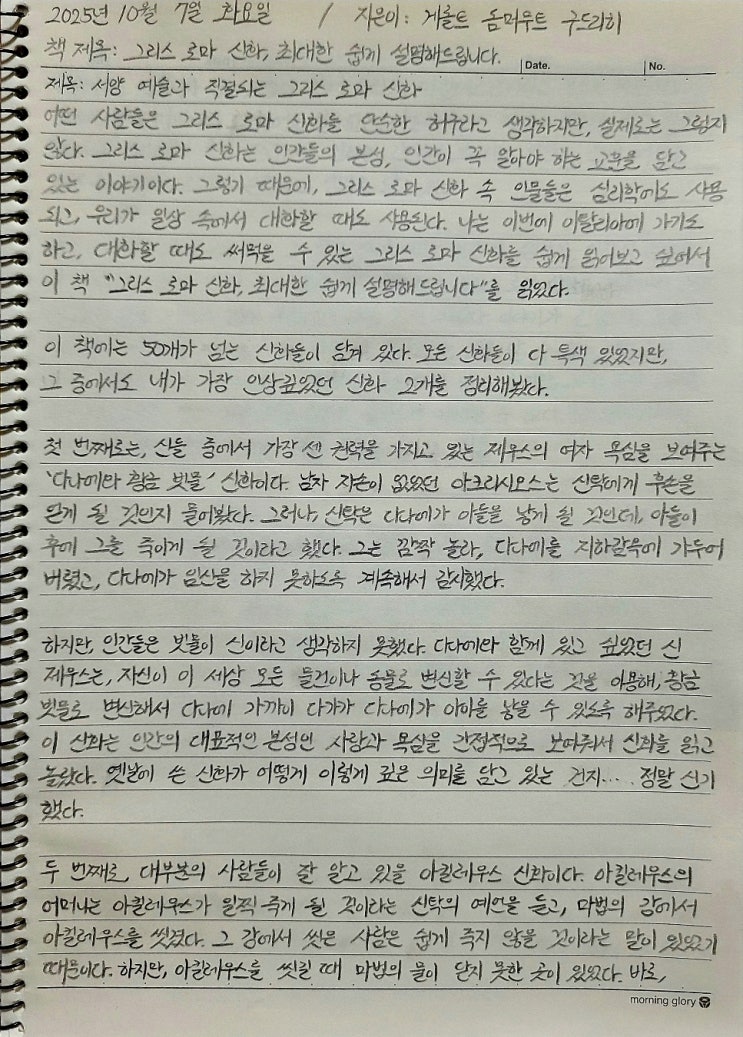 2025년 10월 7월 화요일 / 지은이: 게롤트 돔머무트 구드리히
책 제목: 그리스 로마 신화, 최대한 쉽게 설명해드립니다.
Date. No.
제목: 서양 예술과 직결되는 그리스 로마 신화
어떤 사람들은 그리스 로마 신화를 단순한 허구라고 생각하지만, 실제로는 그렇지
않다. 그리스 로마 신화는 인간들의 본성, 인간이 꼭 알아야 하는 교훈을 담고
있는 이야기이다. 그렇기 때문에, 그리스 로마 신화 속 인물들은 심리학에도 사용
되고, 우리가 일상 속에서 대화할 때도 사용된다. 나는 이번에 이탈리아에 가기도
하고, 대화할 때도 써먹을 수 있는 그리스 로마 신화를 쉽게 읽어보고 싶어서
이 책 "그리스 로마 신화, 최대한 쉽게 설명해드립니다"를 읽었다.
이 책에는 50개가 넘는 신화들이 담겨 있다. 모든 신화들이 다 특색 있었지만,
그 중에서도 내가 가장 인상깊었던 신화 2개를 정리해봤다.
첫 번째로는, 신들 중에서 가장 센 권력을 가지고 있는 제우스의 여자 욕심을 보여주는
'다나에와 황금 빗물' 신화이다. 남자 자손이 없었던 아크리시오스는 신탁에게 후손을
얻게 될 것인지 물어봤다. 그러나, 신탁은 다나에가 아들을 낳게 될 것인데, 아들이
후에 그를 죽이게 될 것이라고 했다. 그는 깜짝 놀라, 다나에를 지하감옥에 가두어
버렸고, 다나에가 임신을 하지 못하도록 계속해서 감시했다.
하지만, 인간들은 빗물이 신이라고 생각하지 못했다. 다나에와 함께 있고 싶었던 신
제우스는, 자신이 이 세상 모든 물건이나 동물로 변신할 수 있다는 것을 이용해, 황금
빗물로 변신해서 다나에 가까이 다가가 다나에가 아이를 낳을 수 있도록 해주었다.
이 신화는 인간의 대표적인 본성인 사랑과 욕심을 간접적으로 보여줘서 신화를 읽고
놀랐다. 옛날에 쓴 신화가 어떻게 이렇게 깊은 의미를 담고 있는 건지.... 정말 신기
했다.
두 번째로, 대부분의 사람들이 잘 알고 있을 아킬레우스 신화이다. 아킬레우스의
어머니는 아킬레우스가 일찍 죽게 될 것이라는 신탁의 예언을 듣고, 마법의 강에서
아킬레우스를 씻겼다. 그 강에서 씻은 사람은 쉽게 죽지 않을 것이라는 말이 있었기
때문이다. 하지만, 아킬레우스를 씻길 때 마법의 물이 닿지 못한 곳이 있었다. 바로,
morning glory